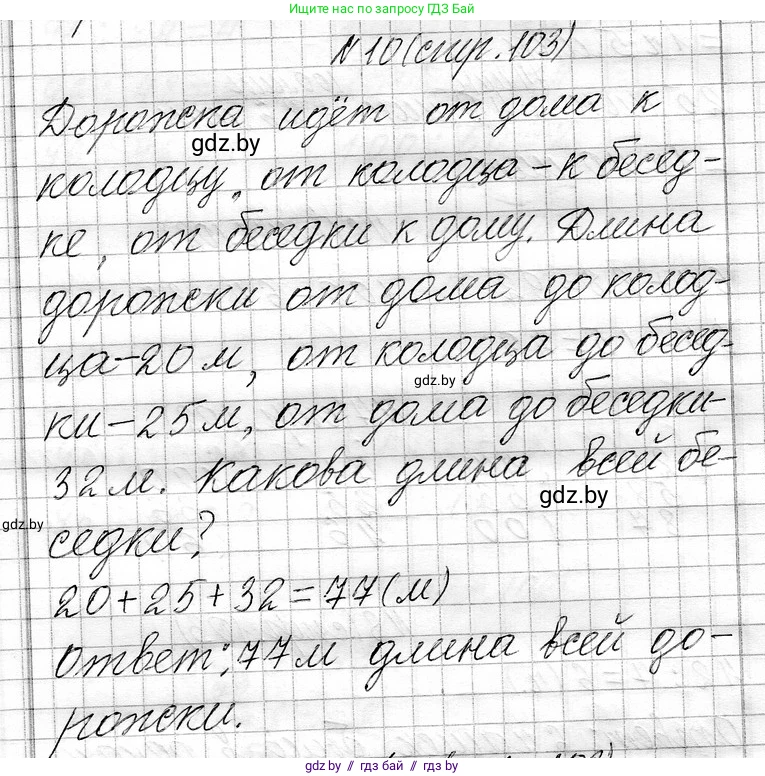 Ищите нас по запросу ГДЗ Бай
N 10 (стр. 103)
Дорожка идёт от дома к
gdz.by
колодцу, от колодца - к бесед-
ке, от беседки к дому. Длина
дорожки от дома до колод-
ца - 20 м, от колодца до бесед-
gdz.by
ки - 25 м, от дома до беседки -
32 м. Какова длина всей бе-
gdz.by
gdz.by
седки?
20 + 25 + 32 = 77 (м)
Ответ: 77 м длина всей до-
рожки.
gdz.by // гдз бай // гдз.by